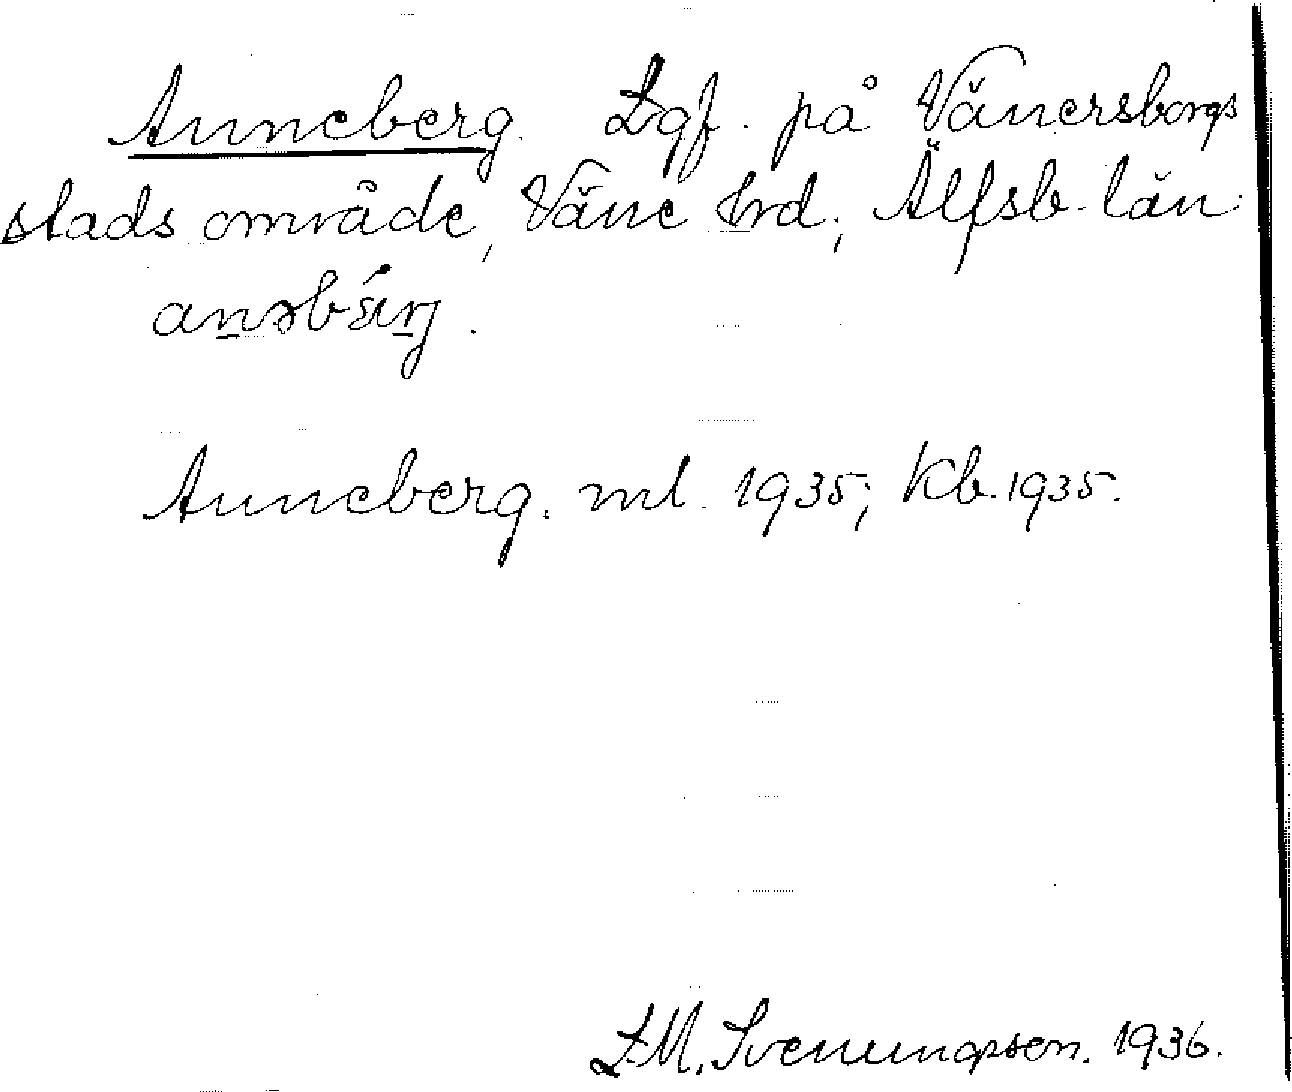 Anneberg. Lgf. på Vänersborgs
stads område, Väne hrd, Älfsb. län.
Anneberg. ml. 1935; Kb. 1935.
Svenungsson. 1936.